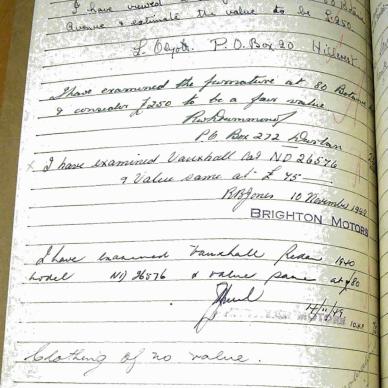 I have viewed
Avenue & estimate the value to be £250.
P.O. Box 20 Hillcrest
I have examined the furniature at 80 Botanic
& consider £250 to be a fair value
PO Box 272 Durban
x I have examined Vauxhall Car ND 26576
& Value same at £75 —
R B Jones 10 November 1949
BRIGHTON MOTORS
I have examined Vauxhall Sedan 1940
model ND 26576 & value same at £80
14/11/49
MOTORS
Clothing of no value.